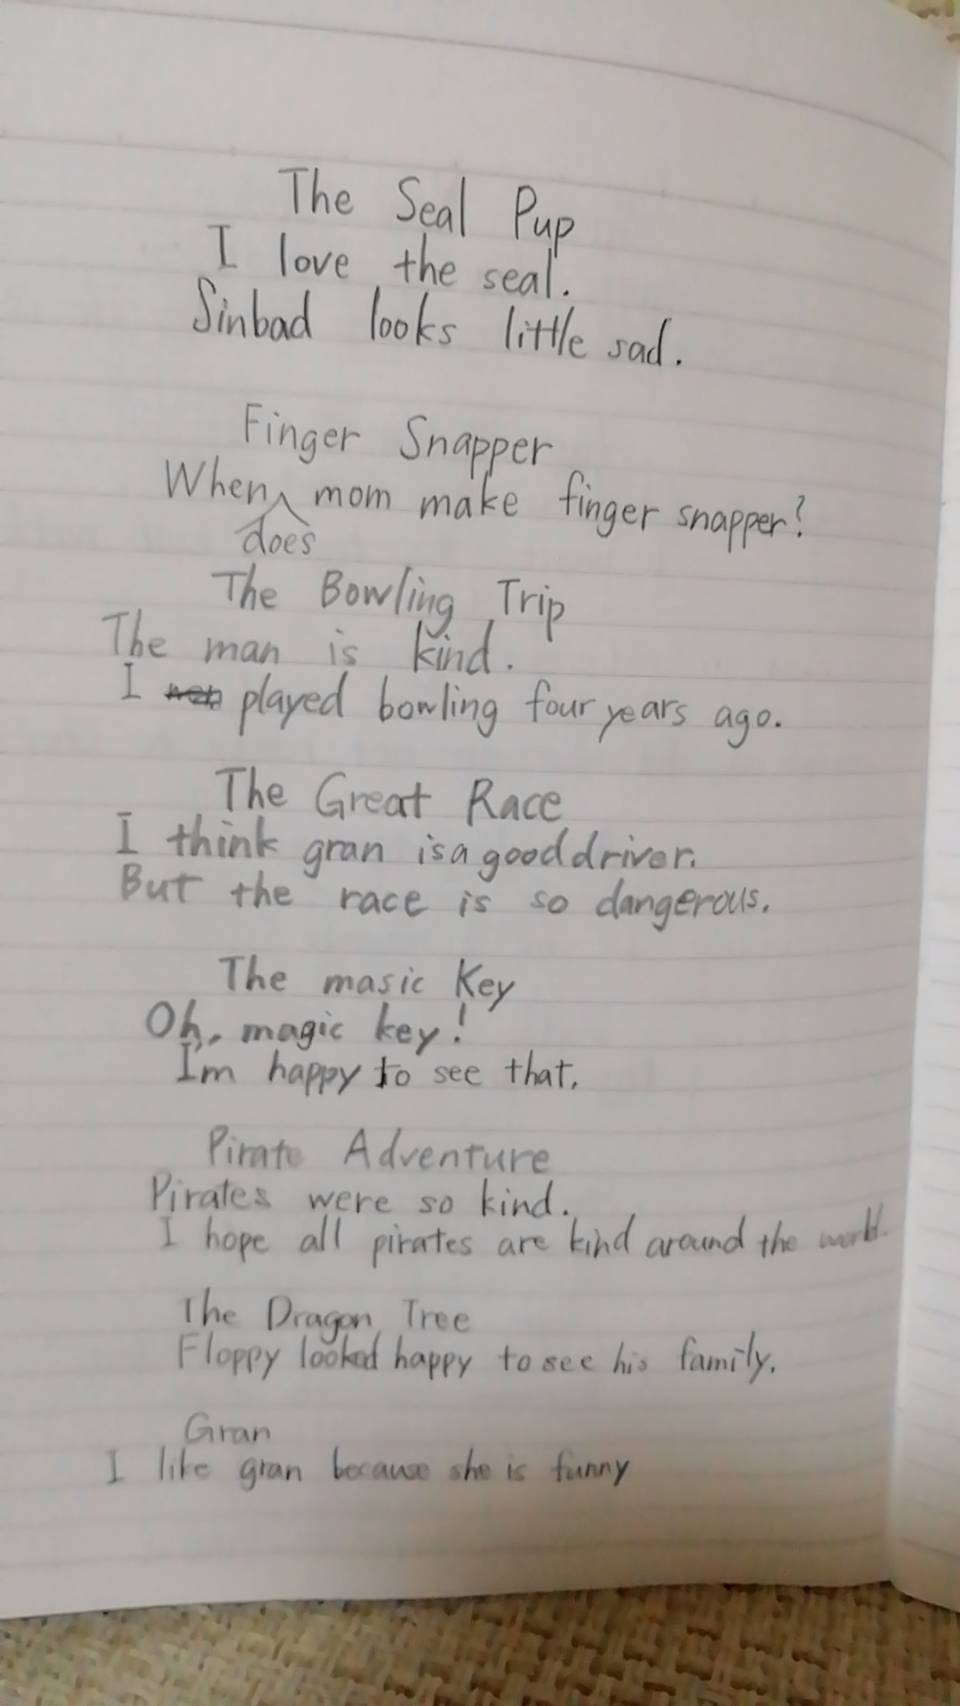 The Seal Pup
I love the seal.
Sinbad looks little sad.
Finger Snapper
When does mom make finger snapper?
The Bowling Trip
The man is kind.
I played bowling four years ago.
The Great Race
I think gran is a good driver.
But the race is so dangerous.
The masic Key
Oh, magic key!
I'm happy to see that.
Pirate Adventure
Pirates were so kind.
I hope all pirates are kind around the world.
The Dragon Tree
Floppy looked happy to see his family.
Gran
I like gran because she is funny